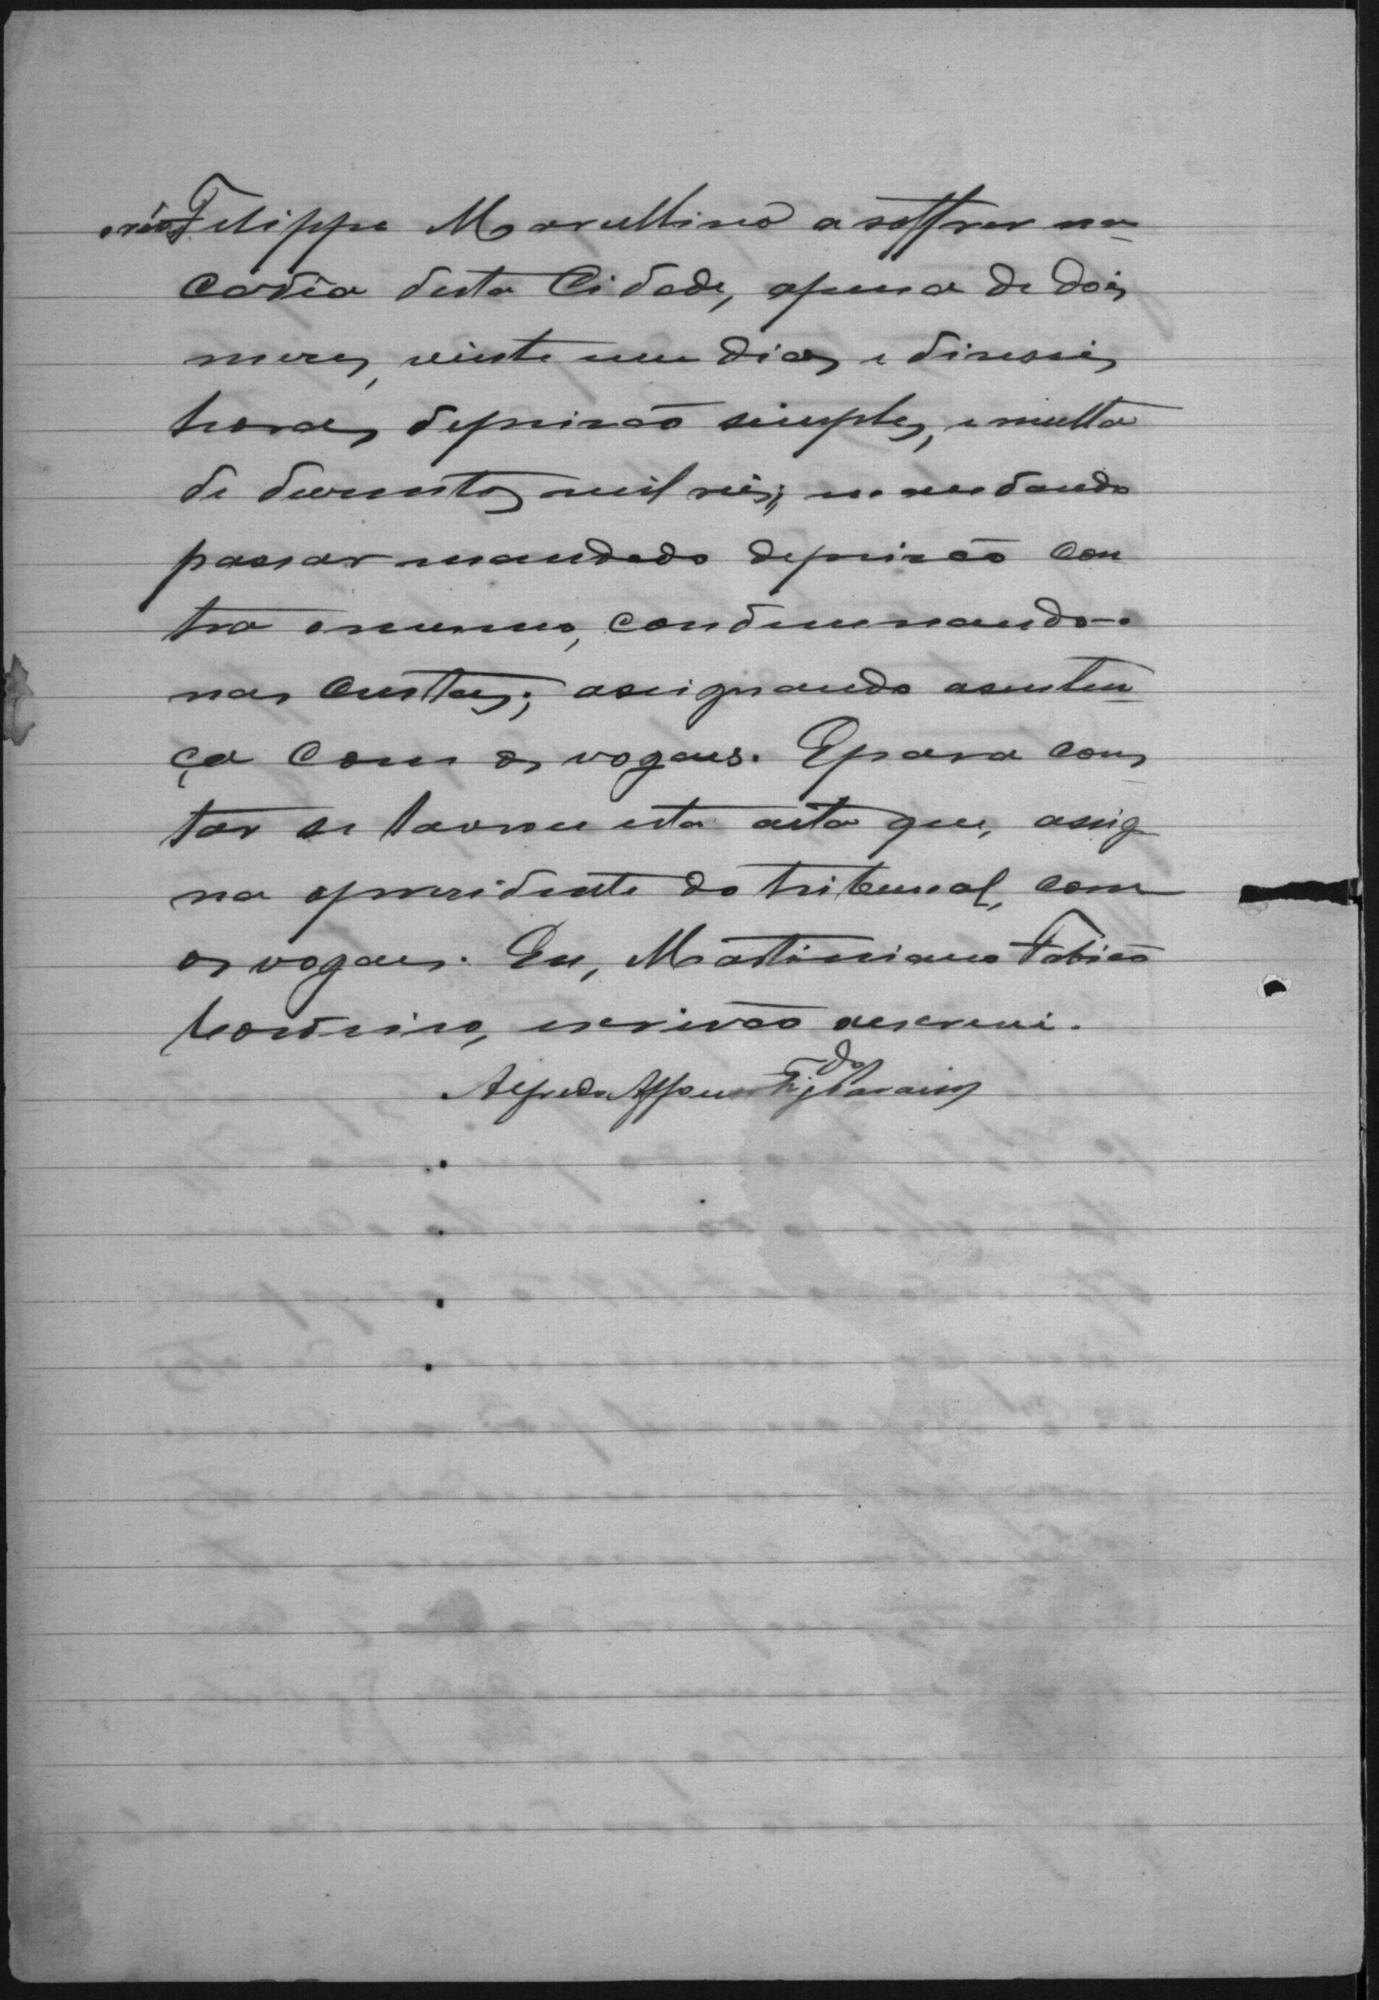 o réo Felippe Marcellino a soffrer na
cadêa desta Cidade, a pena de dois
meses, vinte um dias e deseseis
horas, de prisão simples, e multa
de duzentos mil reis; mandando
passar mandado de prisão con
tra o mesmo, condemnando-o
nas custas; assignando a senten
ça com os vogaes. E para cons
tar se lavrou esta acta que, assig
na o presidente do tribunal, com
os vogaes. Eu, Martiniano Fabião
escrivão a escrevi.
Alfredo Affonso